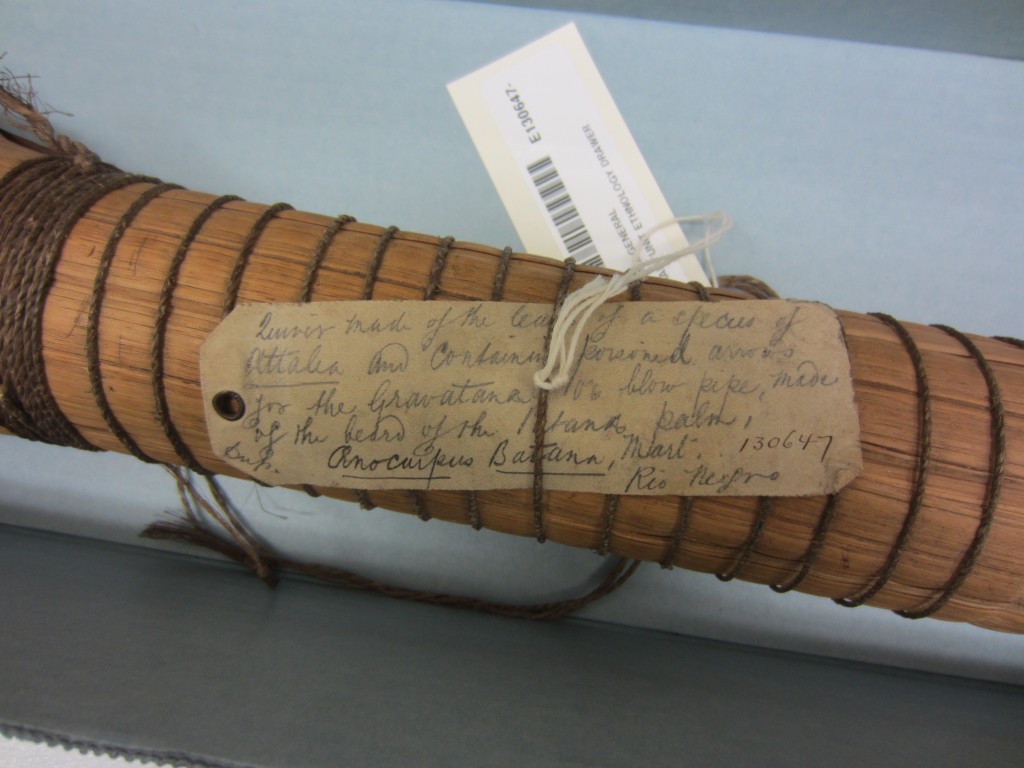 E130647-
ETHNOLOGY DRAWER
GENERAL
UNIT
Quiver made of the leaf of a specus of
Attalea and containing poisoned arrows
for the Gravatana, blow pipe, made
of the beard of the palm,
Dup. Anocurpus Batana, Mart. 130647
Rio Negro